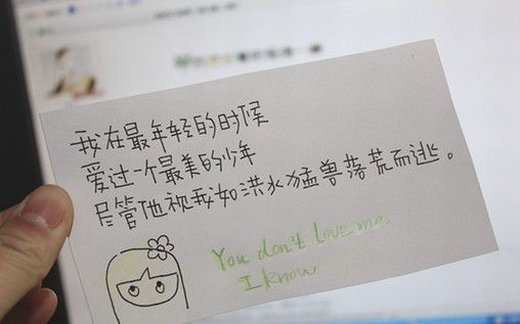 我在最年轻的时候
爱过一个最美的少年
尽管他视我如洪水猛兽落荒而逃。
You don't love me.
I know